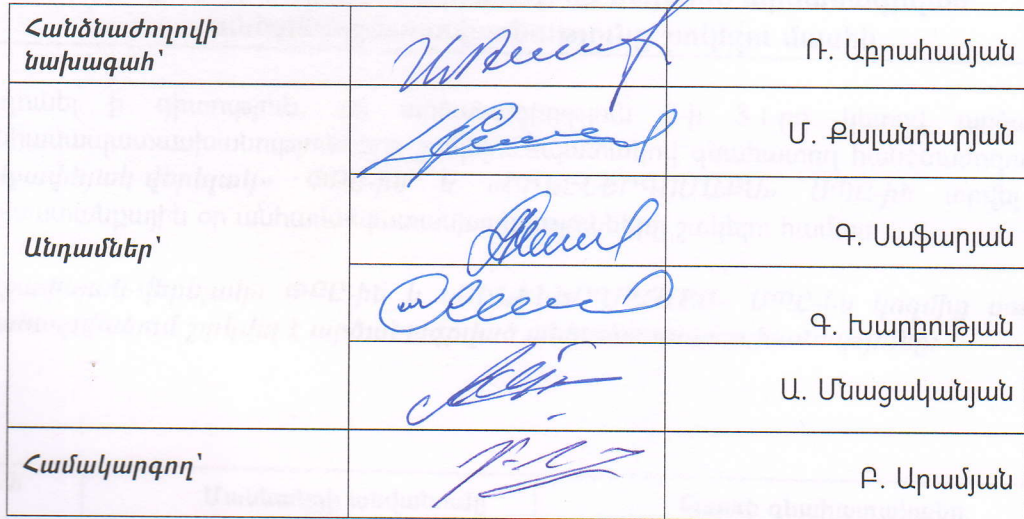 Հանձնաժողովի
նախագահ՝
Ռ. Աբրահամյան
Մ. Քալանդարյան
Անդամներ՝
Գ. Սաֆարյան
Գ. Խարբության
Ա. Մնացականյան
Համակարգող՝
Բ. Արամյան